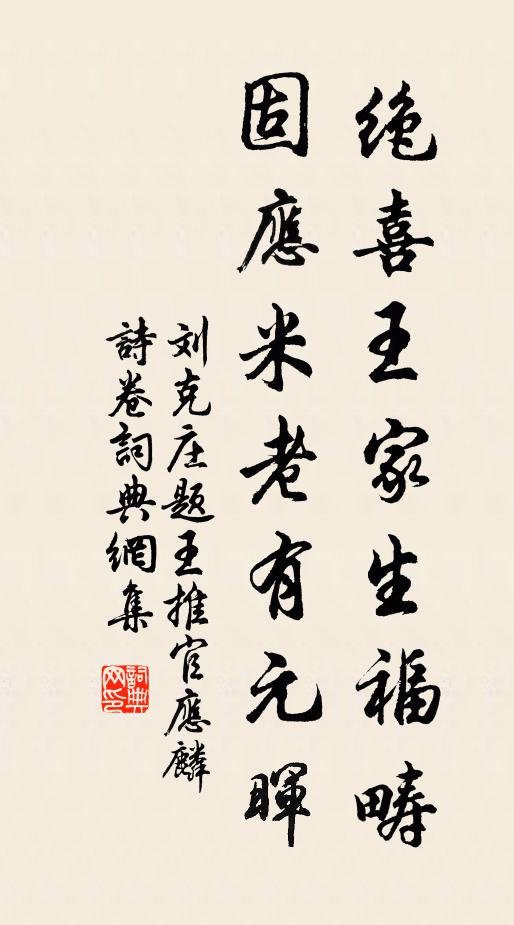 绝喜王家生福畴
固應米老有元暉
刘克庄题王推官應麟
詩卷詞典網集
詞典网印